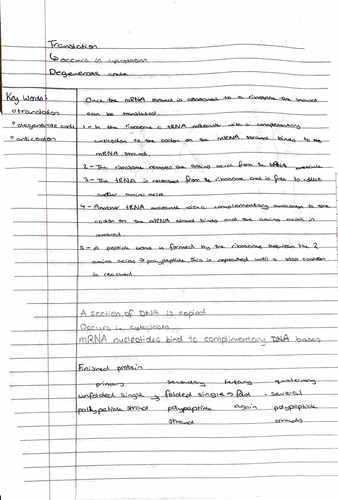 Translation
↳ occurs in cytoplasm
Degenerate code
Key Words:
o translation
o degenerate code
o anticodon
Once the mRNA strand is attached to a ribosome the strand
can be translated.
1 - In the ribosome a tRNA molecule with a complementary
anticodon to the codon on the mRNA strand binds to the
mRNA strand.
2 - The ribosome removes the amino acid from the tRNA molecule
3 - The tRNA is released from the ribosome and is free to collect
another amino acid
4 - Another tRNA molecule with a complementary anticodon to the
codon on the mRNA strand binds and the amino acid is
removed.
5 - A peptide bond is formed by the ribosome between the 2
amino acids → polypeptide. This is repeated until a stop codon
is reached.
A section of DNA is copied
Occurs in cytoplasm
mRNA nucleotides bind to complimentary DNA bases
Finished protein
primary secondary tertiary quaternary
unfolded single → folded single → fold · several
polypeptide strand polypeptide again polypeptide
strand strands